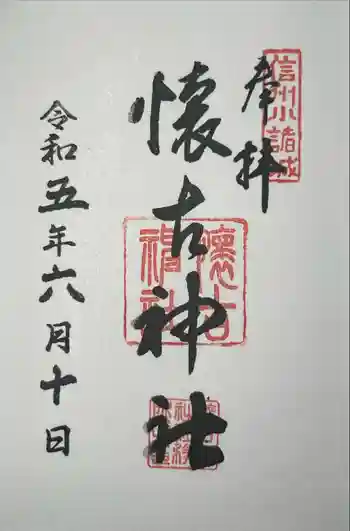 奉拝
信州小諸城
懐古神社
懐古神社
令和五年六月十日